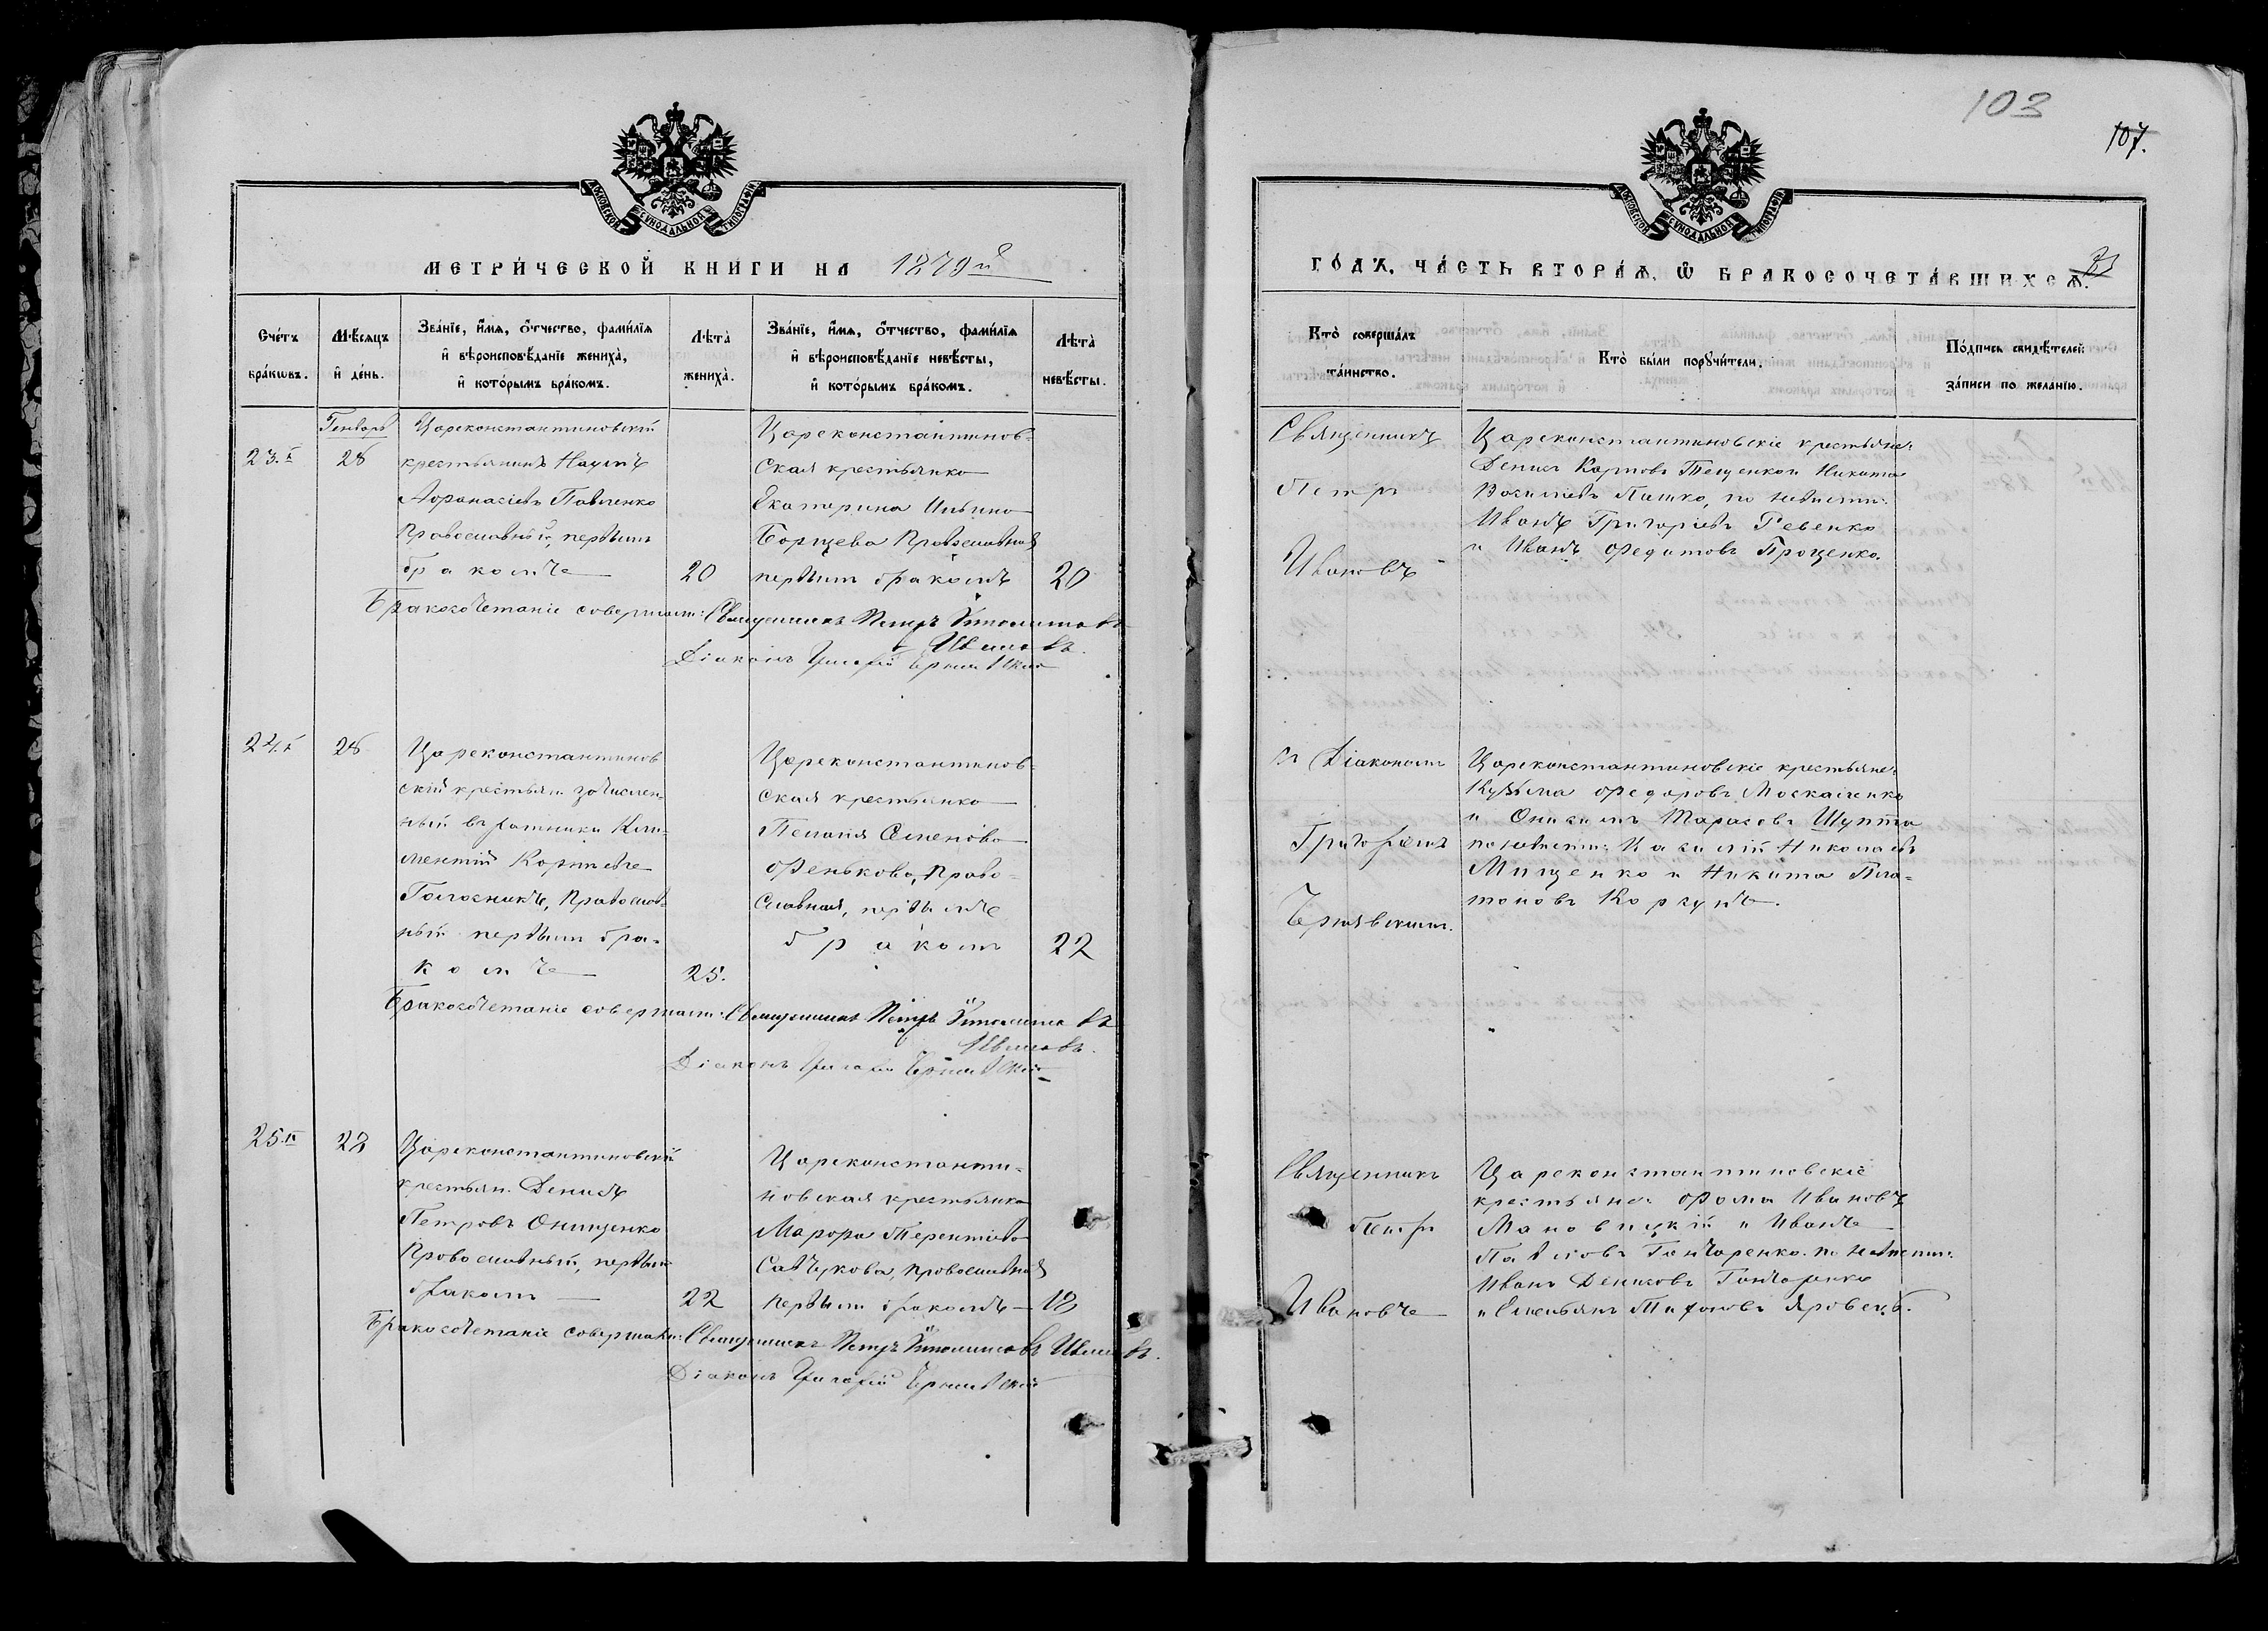 103
107.
МОСКОВСКОЙ СѴНОДАЛЬНОЙ ТИПОГРАФІИ
МЕТРИ́ЧЕСКОЙ КНИГИ НА 1879й
Сче́тъ бра́кѡвъ.
Мѣ́сяцъ и҆ де́нь.
Зва́нїе, и҆́мѧ, ѻ҆́тчество, фами́лїѧ
и҆ вѣроисповѣ́данїе жениха̀,
и҆ кото́рымъ бра́комъ.
Лѣта̀ жениха̀.
Зва́нїе, и҆́мѧ, ѻ҆́тчество, фами́лїѧ
и҆ вѣроисповѣ́данїе невѣ́сты,
и҆ кото́рымъ бра́комъ.
Лѣта̀ невѣ́сты.
Генварь
23.й
28
Цареконстантиновскій
крестьянинъ Наумъ
Афанасіевъ Павленко
Православный, первымъ
бракомъ
20
Цареконстантинов-
ская крестьянка
Екатерина Ильина
Борщева Православная
первым бракомъ
20
Бракосочетаніе совершали: Священникъ Петръ Ипполитовъ
Ивановъ.
Діаконъ Григорій Чернявскій
24.й
28
Цареконстантинов
скій крестьян. зачислен-
ный въ ратники Кли-
ментій Корніевъ
Голосникъ, Православ-
ный первым бра-
комъ
25.
Цареконстантинов-
ская крестьянка
Пелагія Семенова
Фенькова, Право-
славная, первымъ
браком
22
Бракосочетаніе совершали: Священникъ Петръ Ипполитовъ
Ивановъ.
Діаконъ Григорій Чернявскій
25.й
28
Цареконстантиновскій
крестьян. Денисъ
Петровъ Онищенко
Православный, первым
браком
22
Цареконстанти-
новская крестьянка
Марфа Терентіева
Савчукова, православная
первым бракомъ
18
Бракосочетаніе совершали: Священникъ Петръ Ипполитовъ Ивановъ.
Діаконъ Григорій Чернявскій
МОСКОВСКОЙ СѴНОДАЛЬНОЙ ТИПОГРАФІИ
ГО́ДЪ, ЧА́СТЬ ВТОРА́Ѧ, Ѽ БРАКОСОЧЕТА́ВШИХСѦ.
Кто̀ соверша́лъ
та́инство.
Кто̀ бы́ли порꙋчи́тели.
По́дпись свидѣ́телей
за́писи по жела́нїю.
Священникъ
Петръ
Ивановъ
Цареконстантиновскіе крестьяне:
Денисъ Карповъ Тещенко и Никита
Василіевъ Пашко, по невѣсти:
Иванъ Григоріевъ Ревенко
и Иванъ Федотовъ Проценко.
съ Діакономъ
Григоріемъ
Чернявским.
Цареконстантиновскіе крестьяне:
Кузьма Федоровъ Москаленко
и Онисимъ Тарасовъ Шупта
по невѣсти: Василій Николаевъ
Мищенко и Никита Пла-
тоновъ Корзунъ.
Священникъ
Петръ
Ивановъ
Цареконстантиновскіе
крестьяне: Фома Ивановъ
Мановицкій и Иванъ
Павловъ Гончаренко. по невѣсти:
Иванъ Денисовъ Гончаренко
и Емельянъ Тихоновъ Яровой.